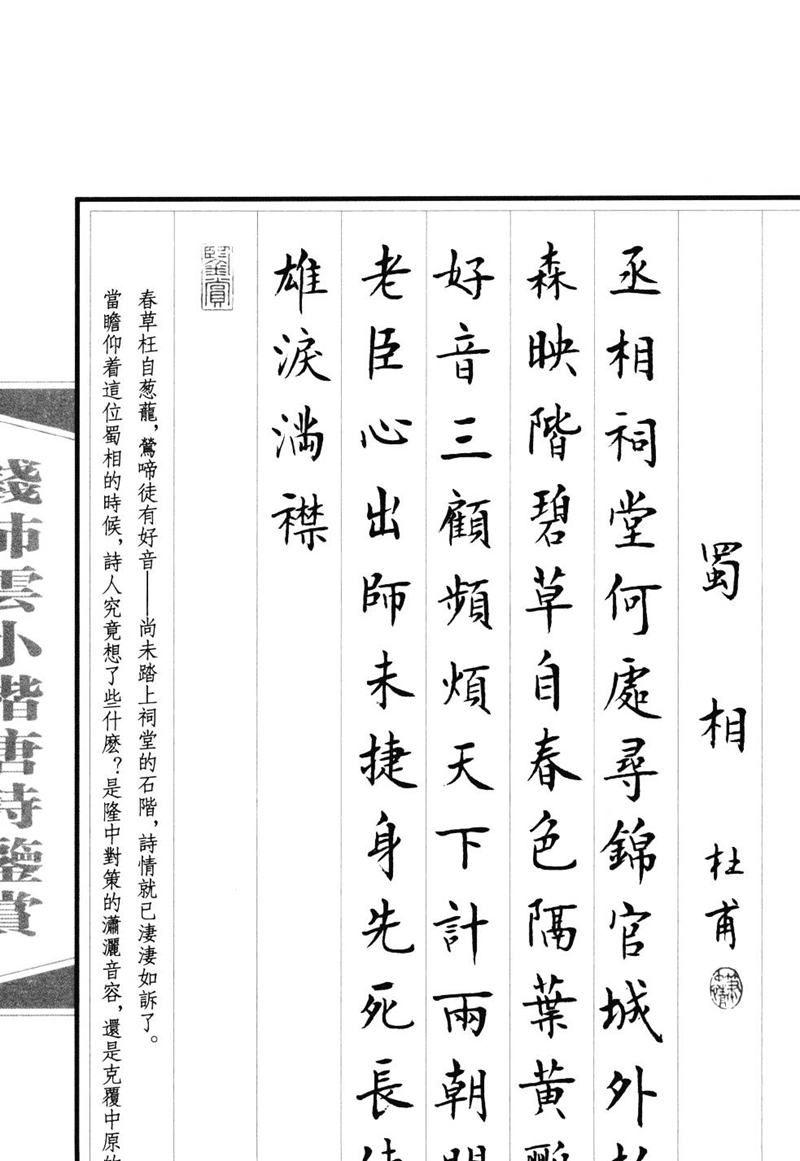 蜀相 杜甫
丞相祠堂何處尋錦官城外柏
森映階碧草自春色隔葉黃鸝
好音三顧頻煩天下計兩朝開
老臣心出師未捷身先死長使
雄淚滿襟
鑒賞
春草枉自葱蘢，鶯啼徒有好音——尚未踏上祠堂的石階，詩情就已淒淒如訴了。
當瞻仰着這位蜀相的時候，詩人究竟想了些什麽？是隆中對策的瀟灑音容，還是克覆中原的
錢沛雲小楷唐詩鑒賞